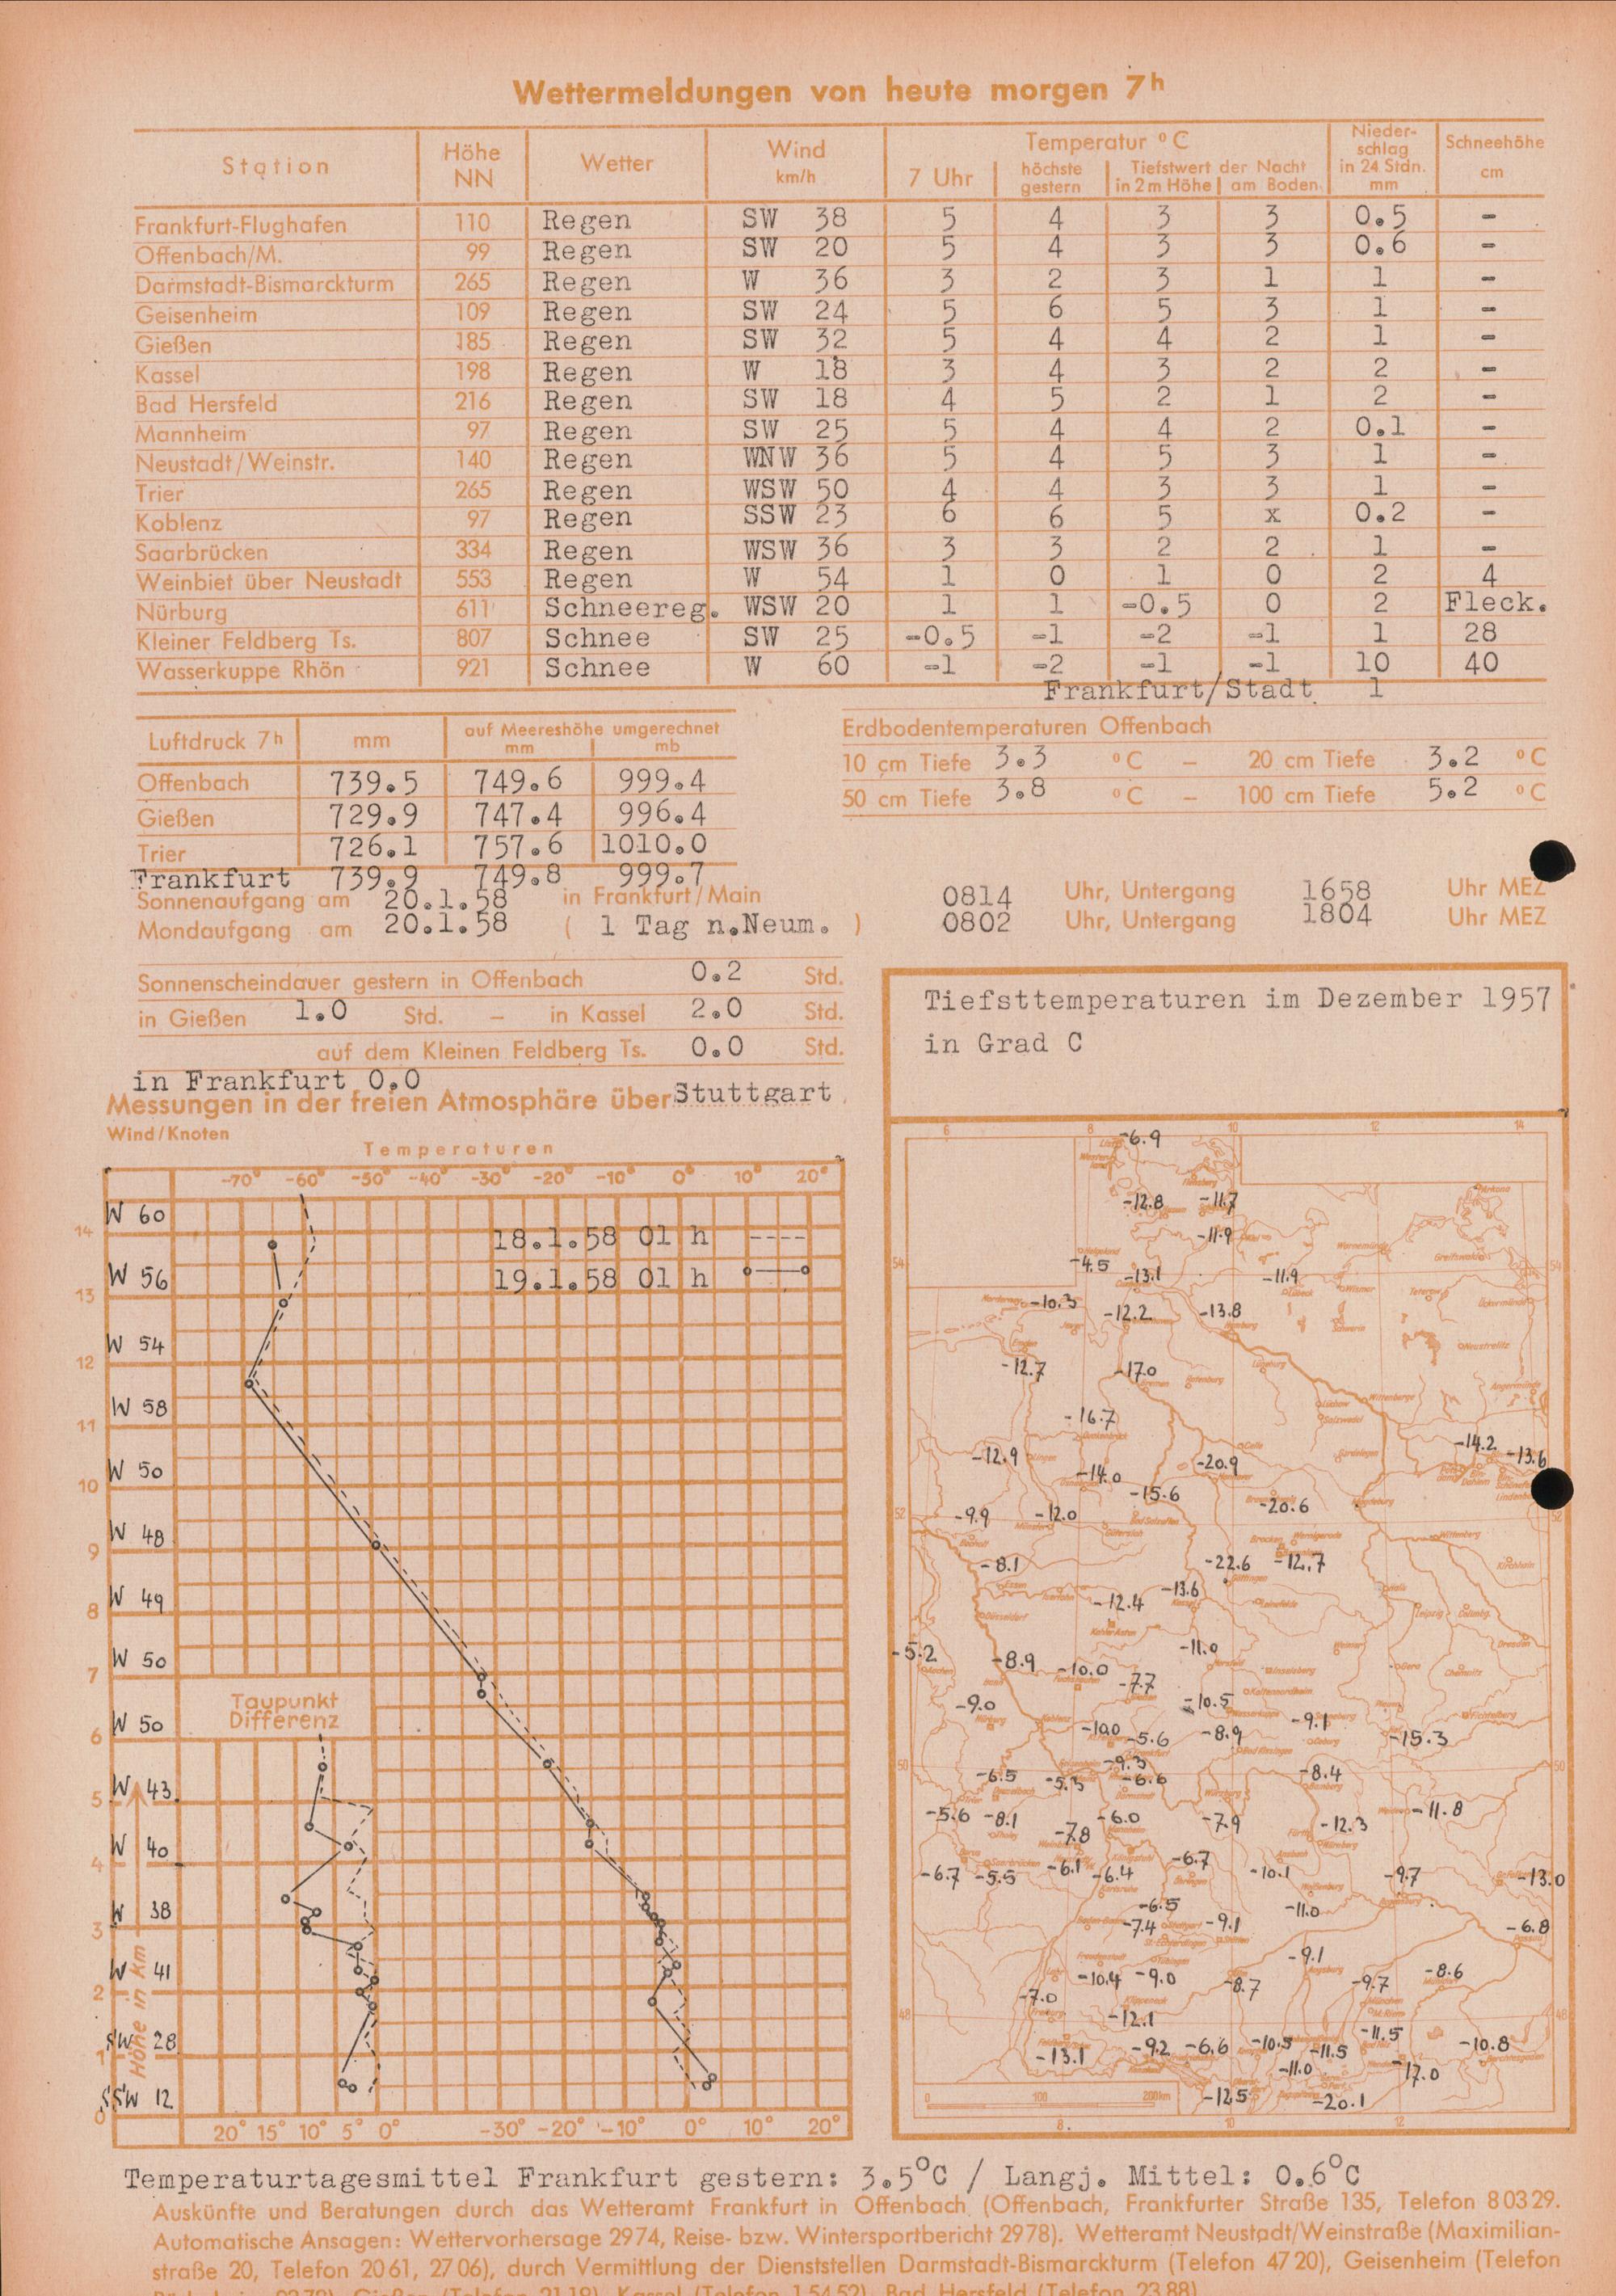 Wettermeldungen von heute morgen 7h
Station Höhe NN Wetter Wind km/h Temperatur °C 7 Uhr höchste gestern Tiefstwert der Nacht in 2 m Höhe am Boden Nieder-schlag in 24 Stdn. mm Schneehöhe cm
Frankfurt-Flughafen 110 Regen SW 38 5 4 3 3 0.5 -
Offenbach/M. 99 Regen SW 20 5 4 3 3 0.6 -
Darmstadt-Bismarckturm 265 Regen W 36 3 2 3 1 1 -
Geisenheim 109 Regen SW 24 5 6 5 3 1 -
Gießen 185 Regen SW 32 5 4 4 2 1 -
Kassel 198 Regen W 18 3 4 3 2 2 -
Bad Hersfeld 216 Regen SW 18 4 5 2 1 2 -
Mannheim 97 Regen SW 25 5 4 4 2 0.1 -
Neustadt/Weinstr. 140 Regen WNW 36 5 4 5 3 1 -
Trier 265 Regen WSW 50 4 4 3 3 1 -
Koblenz 97 Regen SSW 23 6 6 5 x 0.2 -
Saarbrücken 334 Regen WSW 36 3 3 2 2 1 -
Weinbiet über Neustadt 553 Regen W 54 1 0 1 0 2 4
Nürburg 611 Schneereg. WSW 20 1 1 -0.5 0 2 Fleck.
Kleiner Feldberg Ts. 807 Schnee SW 25 -0.5 -1 -2 -1 1 28
Wasserkuppe Rhön 921 Schnee W 60 -1 -2 -1 -1 10 40
Frankfurt/Stadt 1
Luftdruck 7h mm auf Meereshöhe umgerechnet mm mb
Offenbach 739.5 749.6 999.4
Gießen 729.9 747.4 996.4
Trier 726.1 757.6 1010.0
Frankfurt 739.9 749.8 999.7
Erdbodentemperaturen Offenbach
10 cm Tiefe 3.3 °C – 20 cm Tiefe 3.2 °C
50 cm Tiefe 3.8 °C – 100 cm Tiefe 5.2 °C
Sonnenaufgang am 20.1.58 in Frankfurt/Main 0814 Uhr, Untergang 1658 Uhr MEZ
Mondaufgang am 20.1.58 ( 1 Tag n.Neum. ) 0802 Uhr, Untergang 1804 Uhr MEZ
Sonnenscheindauer gestern in Offenbach 0.2 Std.
in Gießen 1.0 Std. – in Kassel 2.0 Std.
auf dem Kleinen Feldberg Ts. 0.0 Std.
in Frankfurt 0.0
Messungen in der freien Atmosphäre über Stuttgart
Wind/Knoten
Temperaturen
-70° -60° -50° -40° -30° -20° -10° 0° 10° 20°
W 60
14
18.1.58 01 h ----
W 56
19.1.58 01 h
13
W 54
12
W 58
11
W 50
10
W 48
9
W 49
8
W 50
7
Taupunkt
Differenz
W 50
6
W 43
5
W 40
4
W 38
3
W 41
2
SW 28
1
SSW 12
0
Höhe in km
20° 15° 10° 5° 0° -30° -20° -10° 0° 10° 20°
Tiefsttemperaturen im Dezember 1957
in Grad C
6 8 10 12 14
-6.9
-12.8 -11.7
-11.9
54 -4.5 -13.1 -11.9 54
-10.3 -12.2 -13.8
-12.7 -17.0
-16.7
-12.9 -14.0 -20.9 -14.2 -13.6
-15.6 -20.6
52 -9.9 -12.0 52
-8.1 -22.6 -12.7
-12.4 -13.6
-5.2 -8.9 -10.0 -11.0
-7.7
-9.0 -10.5
-10.0 -5.6 -8.9 -9.1 -15.3
50 -6.5 -5.3 -9.3 -6.6 -8.4 50
-5.6 -8.1 -7.8 -6.0 -7.9 -12.3 -11.8
-6.7 -5.5 -6.1 -6.4 -6.7 -10.1 -9.7 -13.0
-6.5 -11.0
-7.4 -9.1 -6.8
-9.1
-10.4 -9.0 -8.7 -9.7 -8.6
48 -7.0 48
-12.1
-13.1 -9.2 -6.6 -10.5 -11.5 -11.5 -10.8
-11.0 -17.0
-12.5 -20.1
0 100 200km
8 10 12
Temperaturtagesmittel Frankfurt gestern: 3.5°C / Langj. Mittel: 0.6°C
Auskünfte und Beratungen durch das Wetteramt Frankfurt in Offenbach (Offenbach, Frankfurter Straße 135, Telefon 80329.
Automatische Ansagen: Wettervorhersage 2974, Reise- bzw. Wintersportbericht 2978). Wetteramt Neustadt/Weinstraße (Maximilian-
straße 20, Telefon 2061, 2706), durch Vermittlung der Dienststellen Darmstadt-Bismarckturm (Telefon 4720), Geisenheim (Telefon